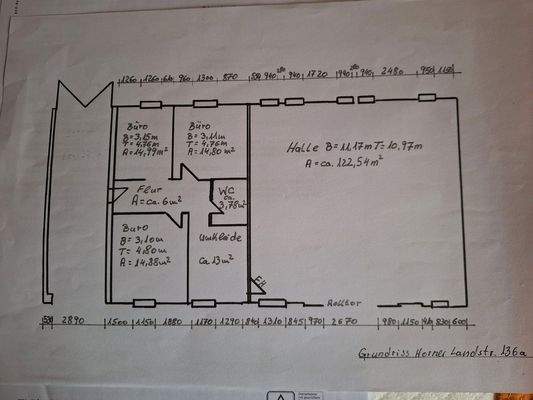 1260 1260 610 960 1300 870 580 940 280 940 1720 940 280 940 2480 950 1150
Büro
B = 3,15m
T = 4,76m
A = 14,99m²
Büro
B = 3,11m
T = 4,76m
A = 14,80m²
Halle B = 11,17m T = 10,97m
A = ca. 122,54m²
Flur
A = ca. 6m²
WC
ca.
3,78m²
Büro
B = 3,10m
T = 4,80m
A = 14,88m²
Umkleide
ca 13m²
FH
Rolltor
530 2890 1500 1150 1880 1170 1290 840 1310 845 970 2670 980 1150 410 830 600
Grundriss Horner Landstr. 136a